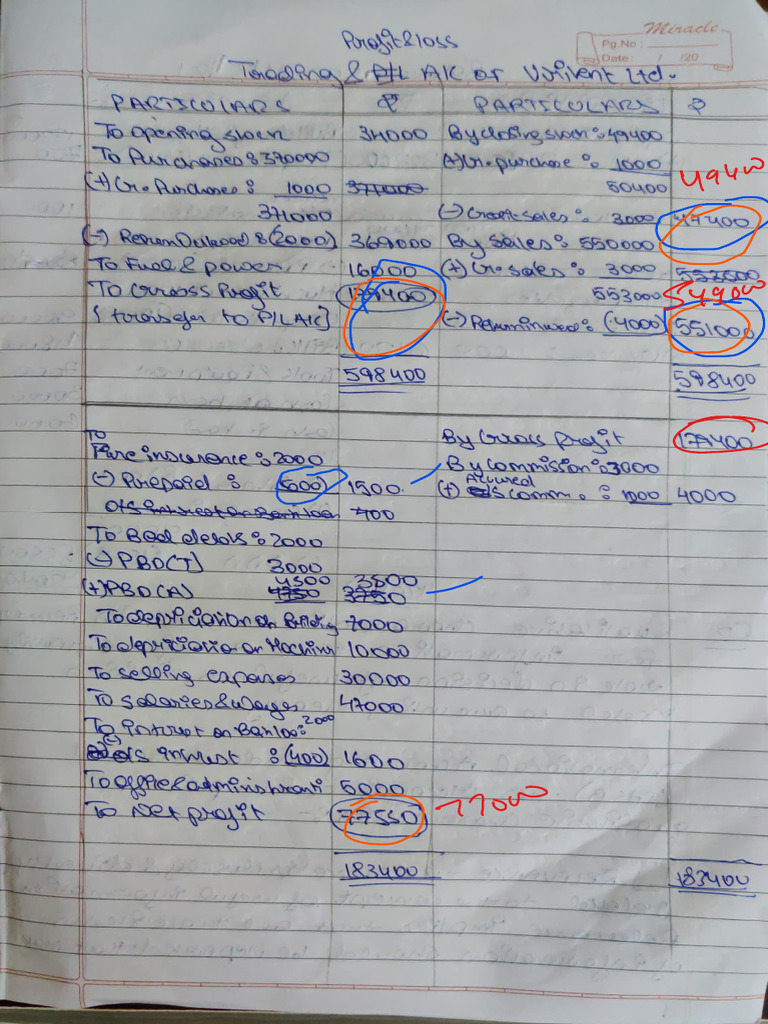 Miracle
Pg.No :
Date : / /20
Profit & loss
Trading & P/L A/C of Ltd.
PARTICULARS ₹ PARTICULARS ₹
To opening stock 34000 By closing stock : 49400
To Purchases : 370000 (+) Cr. purchase : 1000 49400
(+) Cr. Purchases : 1000 371000 50400
371000 (-) Credit sales : 3000 47400
(-) Return Outward : (2000) 369000 By sales : 550000
To Fuel & power 16000 (+) Cr. sales : 3000 553000
To Gross Profit 179400 553000 549000
[transfer to P/L A/C] (-) Return inward : (4000) 551000
598400 598400
To By Gross profit 179400
Fire insurance : 2000 By Commission : 3000
(-) Prepaid : (500) 1500 Accrued
(+) Comm. : 1000 4000
O/S interest on Bank loan 400
To Bad debts : 2000
(-) PBD(T) 3000
4500 3500
(+) PBD(A) 4750 3750
To depriciation on Building 7000
To depriciation on Machine 10000
To selling expenses 30000
To salaries & wages 47000
To interest on Bank loan : 2000
O/S interest : (400) 1600
To office & administrati 5000
To Net profit 77550 77000
183400 183400